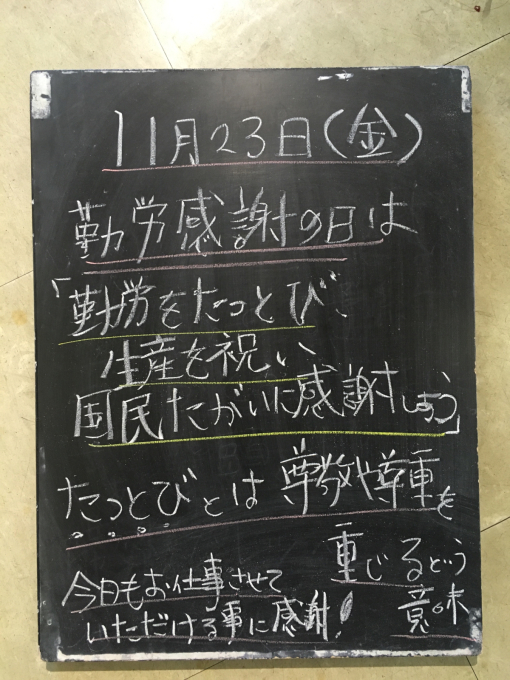 11月23日(金)
勤労感謝の日は
「勤労をたっとび、
生産を祝い、
国民たがいに感謝しあう」
たっとびとは 尊敬や尊重を
重じるという
意味
今日もお仕事させて
いただける事に感謝!